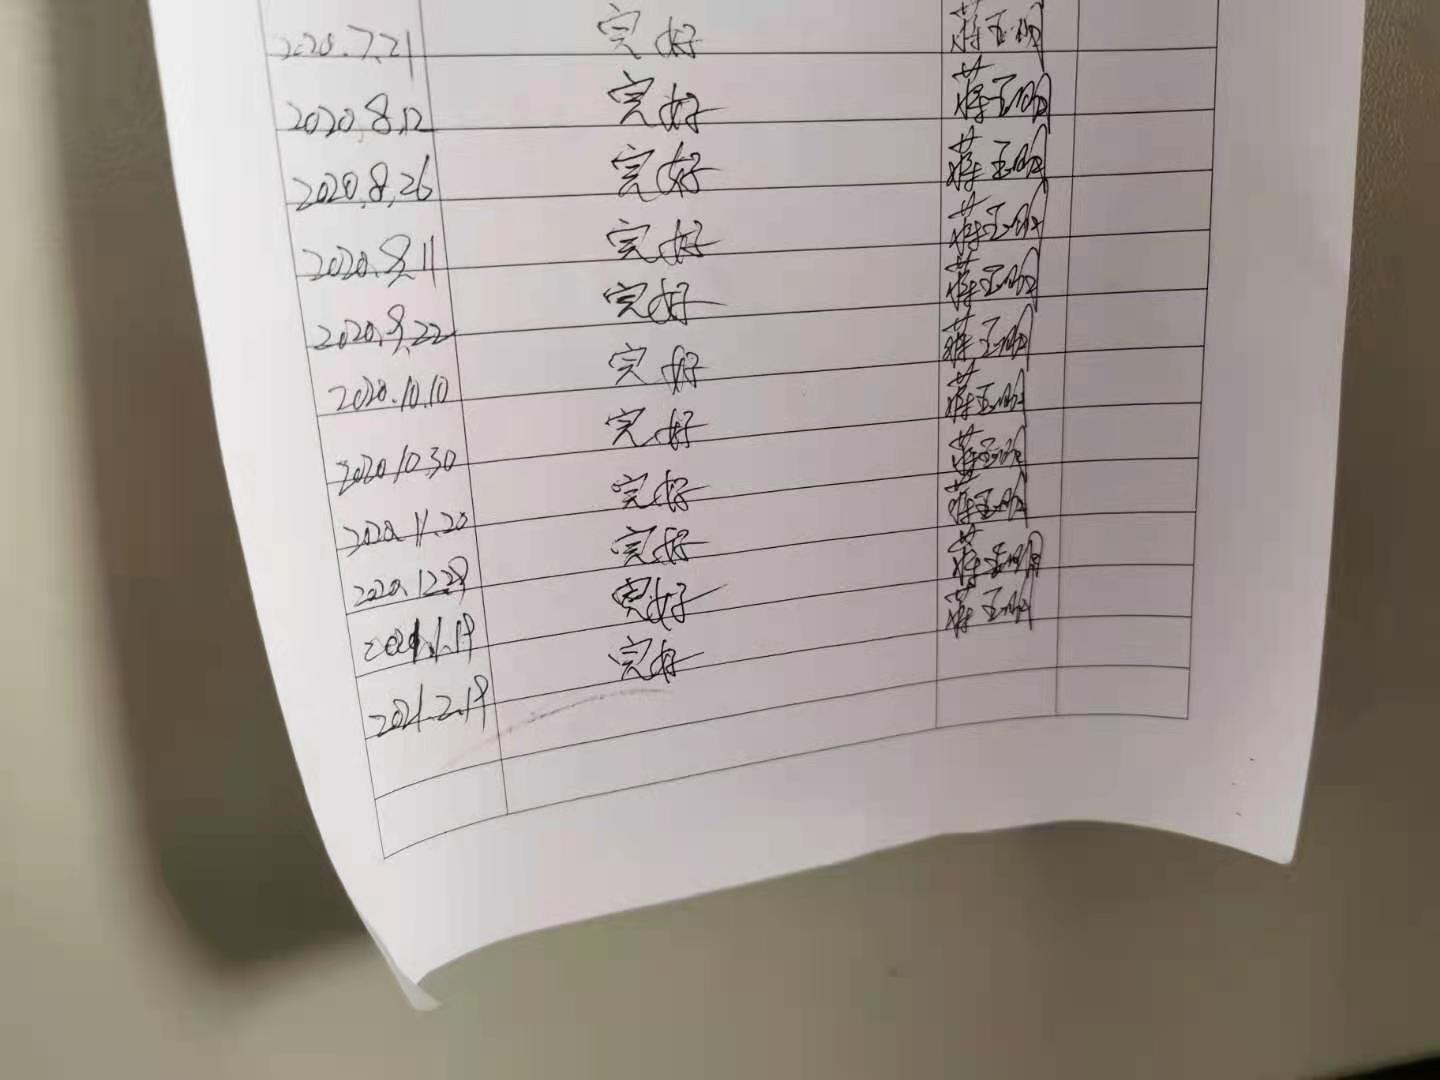 2020.7.21 完好 蒋玉明
2020.8.12 完好 蒋玉明
2020.8.26 完好 蒋玉明
2020.9.11 完好 蒋玉明
2020.9.22 完好 蒋玉明
2020.10.10 完好 蒋玉明
2020.10.30 完好 蒋玉明
2020.11.20 完好 蒋玉明
2020.12.28 完好 蒋玉明
2021.1.19 完好 蒋玉明
2021.2.19 完好 蒋玉明